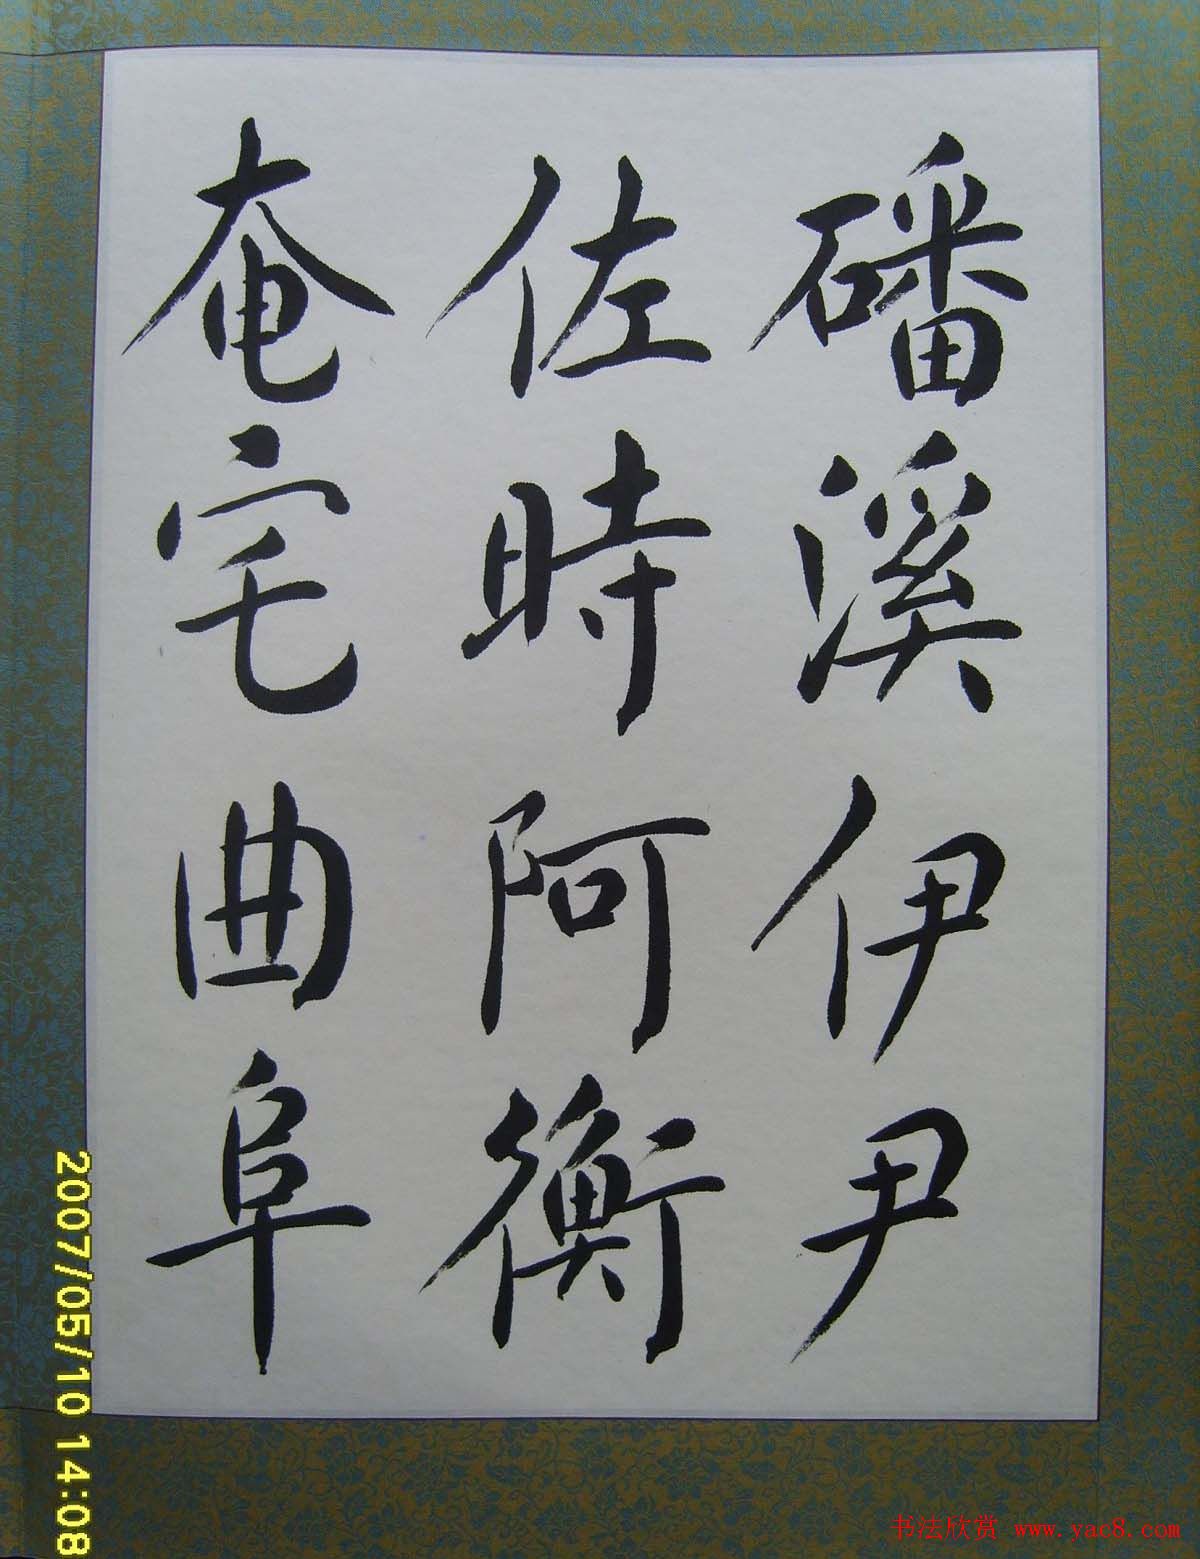 磻溪伊尹
佐時阿衡
奄宅曲阜
2007/05/10 14:08
书法欣赏 www.yac8.com